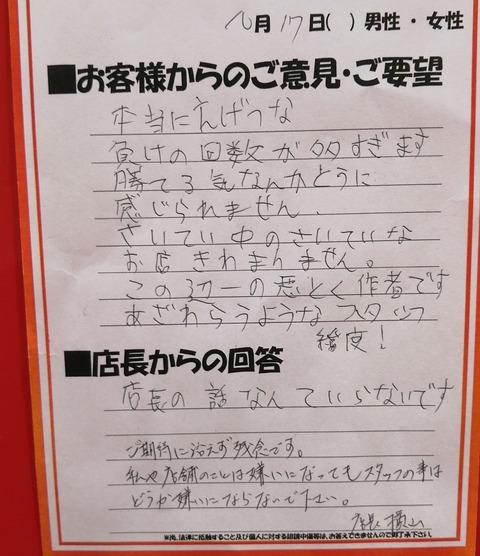 月17日( ) 男性・女性
■お客様からのご意見・ご要望
本当にえげつな
負けの回数が多すぎます
勝てる気なんかとうに
感じられません、
さいてい中のさいていな
お店きわまりません。
この辺一の悪とく作者です
あざわらうようなスタッフ
態度！
■店長からの回答
店長の話なんていらないです
ご期待に沿えず残念です。
私や店舗のことは嫌いになってもスタッフの事は
どうか嫌いにならないで下さい。
店長 横山
※尚、法律に抵触すること及び個人に対する誹謗中傷等は、お答えできませんので御了承下さい。